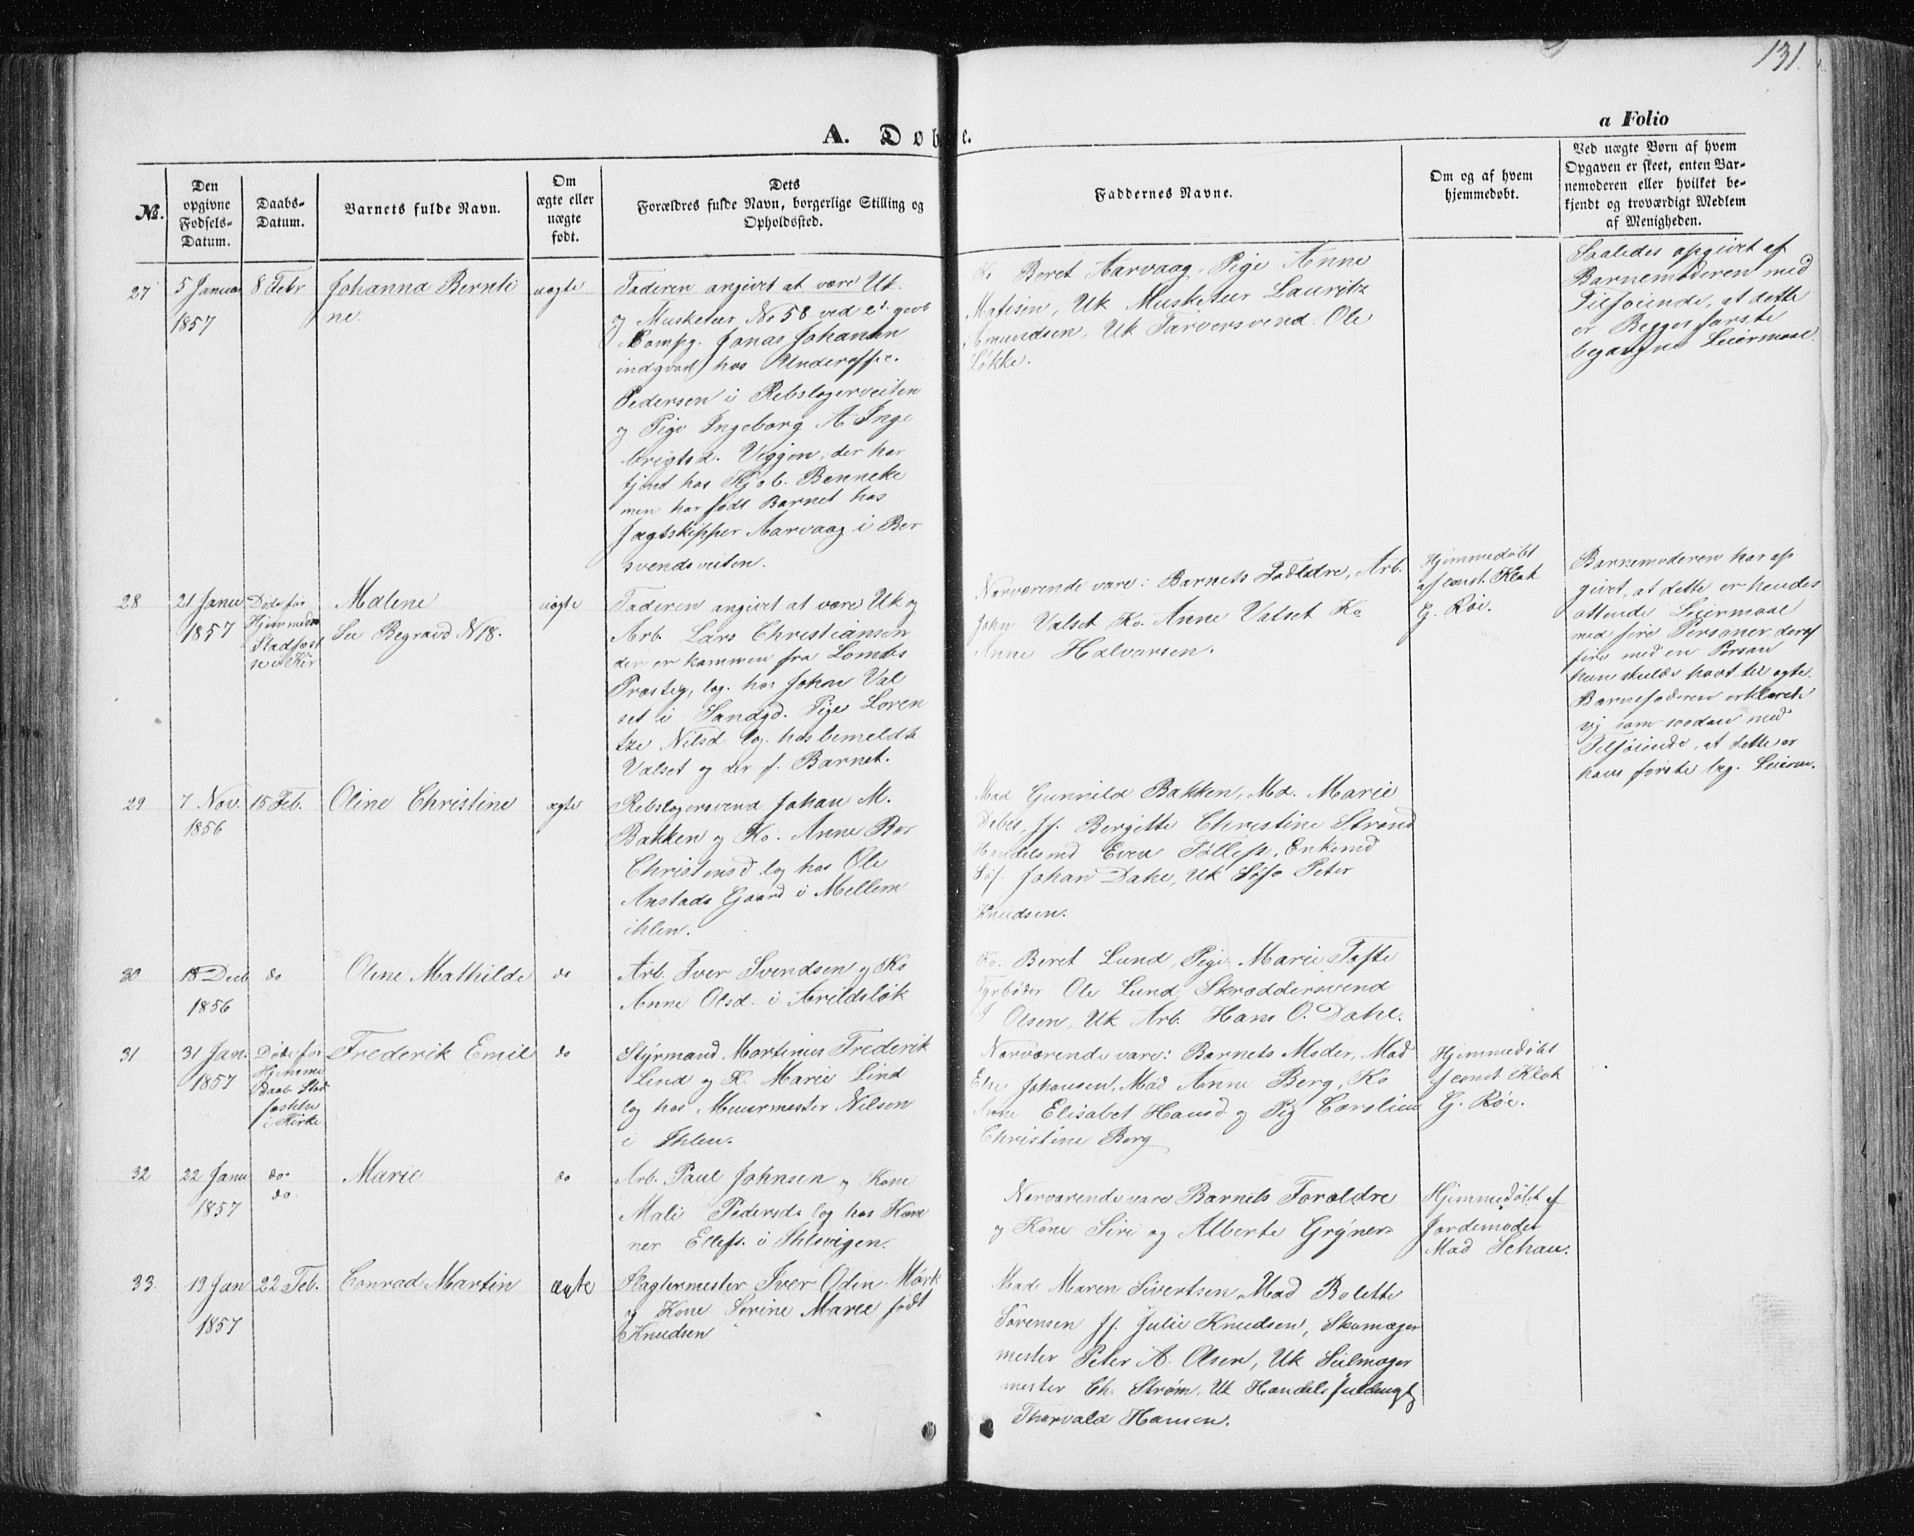 131.
a Folio
A. Døbte.
No.
Den opgivne Fødsels-Datum.
Daabs-Datum.
Barnets fulde Navn.
Om ægte eller uægte født.
Dets Forældres fulde Navn, borgerlige Stilling og Opholdssted.
Faddernes Navne.
Om og af hvem hjemmedøbt.
Ved uægte Børn af hvem Opgaven er skeet, enten Barnemoderen eller hvilket bekjendt og troværdigt Medlem af Menigheden.
27
5 Januar
1857
8 Febr
Johanna Bernti
ne.
uægte
Faderen angivet at være Uk.
og Musketeer No 58 ved
Compg. Jonas Johannsn
indqvart hos Underoffic.
Pedersen i Rebslagerveiten
og Pige Ingeborg A. Inge
brigtsd. Viggen, der har
tjent hos Kjøb. Benneke
men har født Barnet hos
Jagtskipper Aarvaag i Ber
svendsveiten.
Ko Beret Aarvaag, Pige Anne
Matisen, Uk Musketeer Lauritz
Amundsen, Uk Farversvend Ole
Løkke.
Saaledes opgivet af
Barnemoderen med
Tilføiende, at dette
er Begges første
begangne Leiermaal.
28
21 Janu
1857
Døde før
Hjemmed
Stadfæst
se i Kir
Malene
See Begravd N 18.
uægte
Faderen angivet at være Uk og
Arb. Lars Christiansen
der er kommen fra Lombs
Præsteg, log. hos John Val
set i Sandgd. Pige Loren
tze Nilsd log. hos bemeldte
Valset og der f. Barnet.
Nærværende vare: Barnets Forældre, Arb.
John Valset Ko. Anne Valset Ko
Anne Halvorsen.
Hjemmedøbt
af const. Klok
G. Røe.
Barnemoderen har op
givet, at dette er hendes
ottende Leiermaal
med fire Personer, deraf
fire med en Person
hun skulde havt til ægte.
Barnefaderen erklærede
sig som saadan med
Tilføiende, at dette er
hans første beg. Leierm.
29
7 Nov.
1856
15 Feb.
Oline Christine
ægte
Rebslagersvend Johan M.
Bakken og Ko. Anne Ber
Christensd log hos Ole
Anstads Gaard i Mellem
ihlen.
Mad Gunnild Bakken, Md. Marie
Debes, Jf. Bergitte Christine Strand
Handelsmd Even Tøllefs, Enkemd
Søf. Johan Dahl, Uk Søfo Peter
Knudsen.
30
18 Deeb
1856
do
Oline Mathilde
do
Arb. Iver Svendsen og Ko
Anne Olsd. i Arildsløk
Ko. Beret Lund, Pige Marie Tofte
Fyrbøder Ole Lund, Skræddersvend
Olsen, Uk Arb. Hans O. Dahl.
31
31 Jan.
1857
Døde før
Hjemme
daab Stad
fæstelse
i Kirke
Frederik Emil
do
Styrmand Martinus Frederik
Lind og K. Marie Lind
log hos Muurmester Nilsen
i Ihlen.
Nærværende vare: Barnets Moder, Mad
Else Johansen, Mad Anne Berg, Ko
Anne Elisabet Hansd og Pig Caroline
Christine Berg
Hjemmedøbt
af const. Klok
G. Røe.
32
22 Janu
1857
do
do
Marie
do
Arb. Paul Johnsen og Kone
Mali Pedersd log hos Kone
ner Ellefs. i Ihlevigen.
Nærværende vare Barnets Forældre
og Kone Siri og Alberte Gryner
Hjemmedøbt af
Jordemoder
Mad Schau.
33.
19 Jan
1857
22 Feb.
Conrad Martin
ægte
Slagtermester Iver Odin Mørk
og Kone Serine Marie født
Knudsen
Mad Maren Sivertsen, Mad Bolette
Sørensen Jf. Julie Knudsen, Skomager
mester Peter A. Olsen, Uk Seilmager
mester Ch. Strøm, Uk Handelsfuldmægt
Thorvald Hansen.